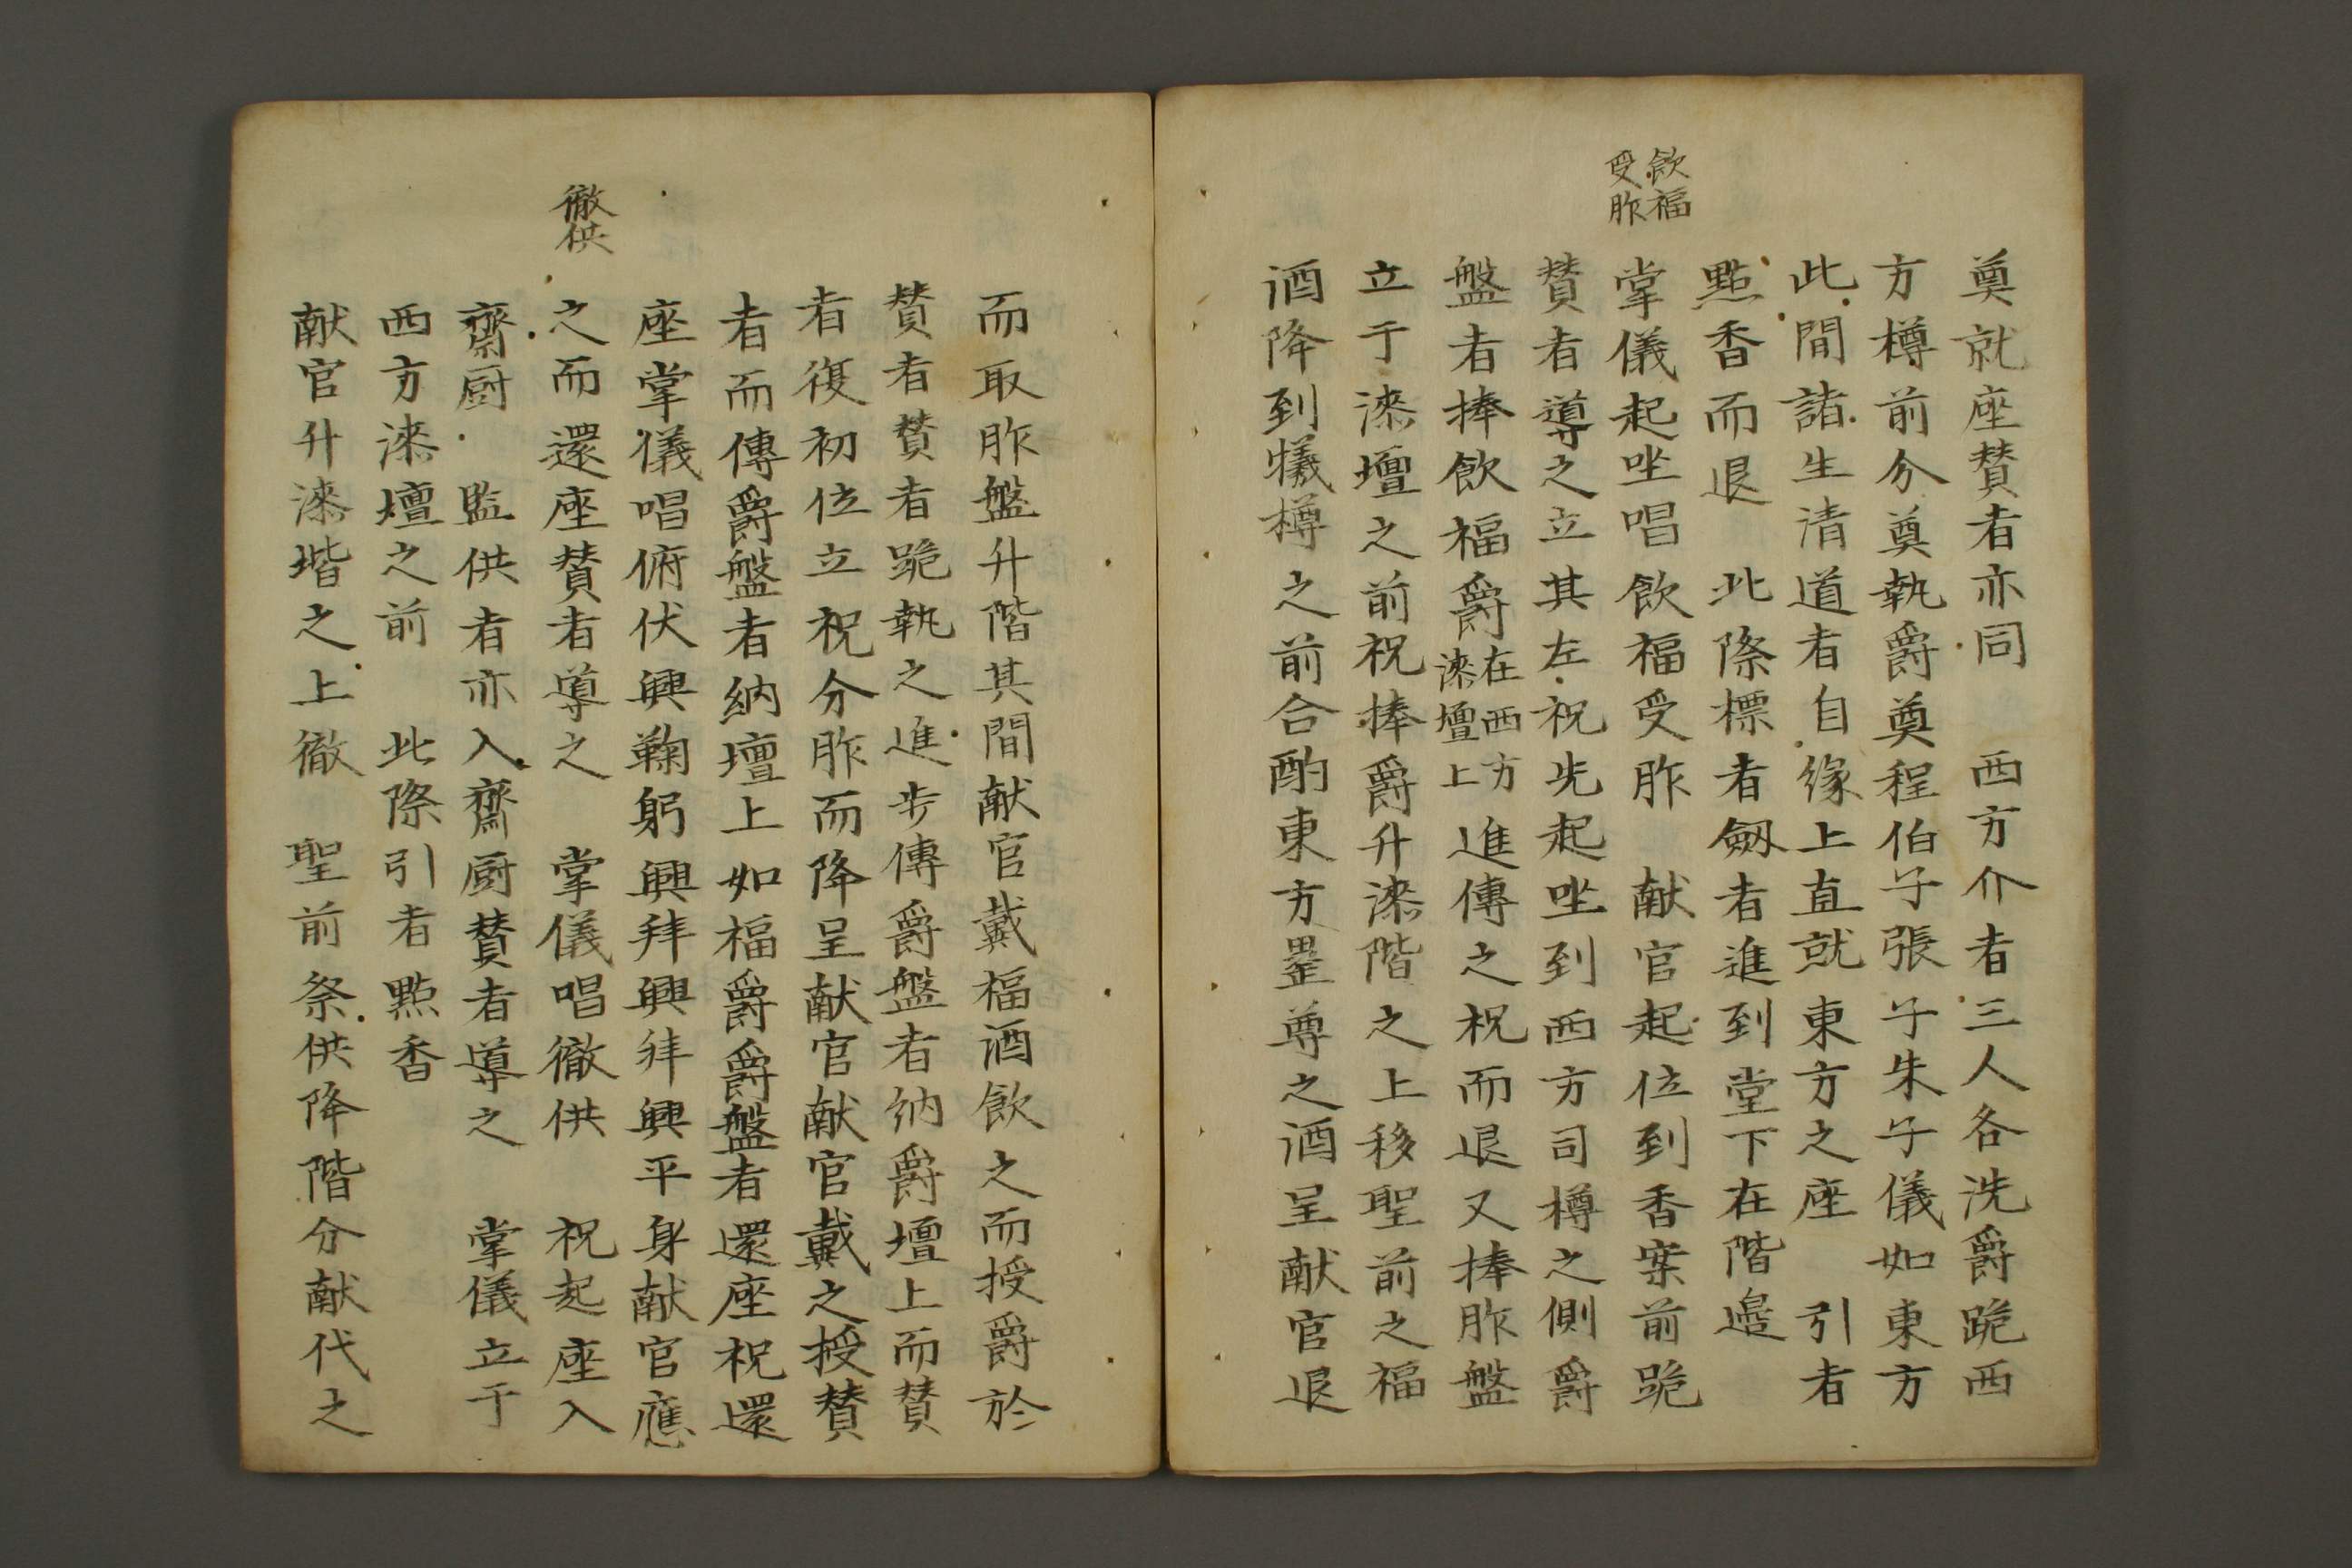 飲福
受胙
奠就座賛者亦同　西方介者三人各洗爵跪西
方樽前分奠執爵奠程伯子張子朱子儀如東方
此間諸生清道者自縁上直就東方之座　引者
點香而退　此際標者劔者進到堂下在階邉
掌儀起唑唱飲福受胙　献官起位到香案前跪
賛者導之立其左祝先起唑到西方司樽之側爵
盤者捧飲福爵在西方漆壇上進傳之祝而退又捧胙盤
立于漆壇之前祝捧爵升漆階之上移聖前之福
酒降到犠樽之前合酌東方罍尊之酒呈献官退
徹供
而取胙盤升階其間献官戴福酒飲之而授爵於
賛者賛者跪執之進步傳爵盤者納爵壇上而賛
者復初位立祝分胙而降呈献官献官戴之授賛
者而傳爵盤者納壇上如福爵爵盤者還座祝還
座掌儀唱俯伏興鞠躬興拜興拜興平身献官應
之而還座賛者導之　掌儀唱徹供　祝起座入
齋厨　監供者亦入齋厨賛者導之　掌儀立于
西方漆壇之前　此際引者點香
献官升漆堦之上徹　聖前祭供降階分献代之